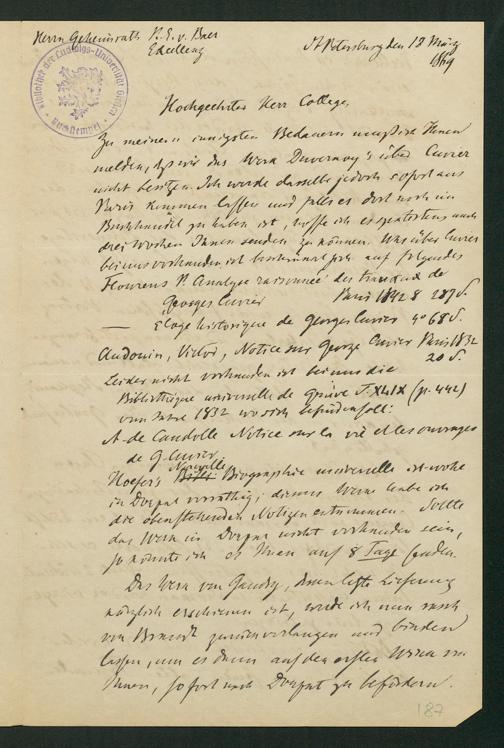 Herrn Geheimrath K. E. v. Baer
Excellenz
St Petersburg den 18 März
1869
Bibliothek der Ludwigs-Universität Gießen
Hochgeehrter Herr College,
Zu meinem innigsten Bedauern muss ich Ihnen
melden, dass wir das Werk Duvernoy's über Cuvier
nicht besitzen. Ich werde dasselbe jedoch sofort aus
Paris kommen lassen und falls es dort noch im
Buchhandel zu haben ist, hoffe ich es spätestens nach
drei Wochen Ihnen senden zu können. Was über Cuvier
bei uns vorhanden ist beschränkt sich auf folgendes
Flourens P. Analyse raisonnée des travaux de
Georges Cuvier Paris 1842 8 287 S.
— Eloge historique de Georges Cuvier 4° 68 S.
Audouin, Victor, Notice sur George Cuvier Paris 1832
20 S.
Leider nicht vorhanden ist bei uns die
Bibliothèque universelle de Genève T. XLIX (p. 442)
vom Jahre 1832 wo sich befinden soll:
A de Candolle Notice sur la vie et les ouvrages
de G. Cuvier
Hoefer's Nouvelle Biographie universelle ist wohl
in Dorpat vorräthig; diesem Werk habe ich
die obenstehenden Notizen entnommen. Sollte
das Werk in Dorpat nicht vorhanden sein,
so könnte ich es Ihnen auf 8 Tage senden.
Das Werk von Gaudry, dessen letzte Lieferung
kürzlich erschienen ist, werde ich nun rasch
von Brandt zurückverlangen und binden
lassen, um es dann auf den ersten Wink von
Ihnen, sofort nach Dorpat zu befördern.
187